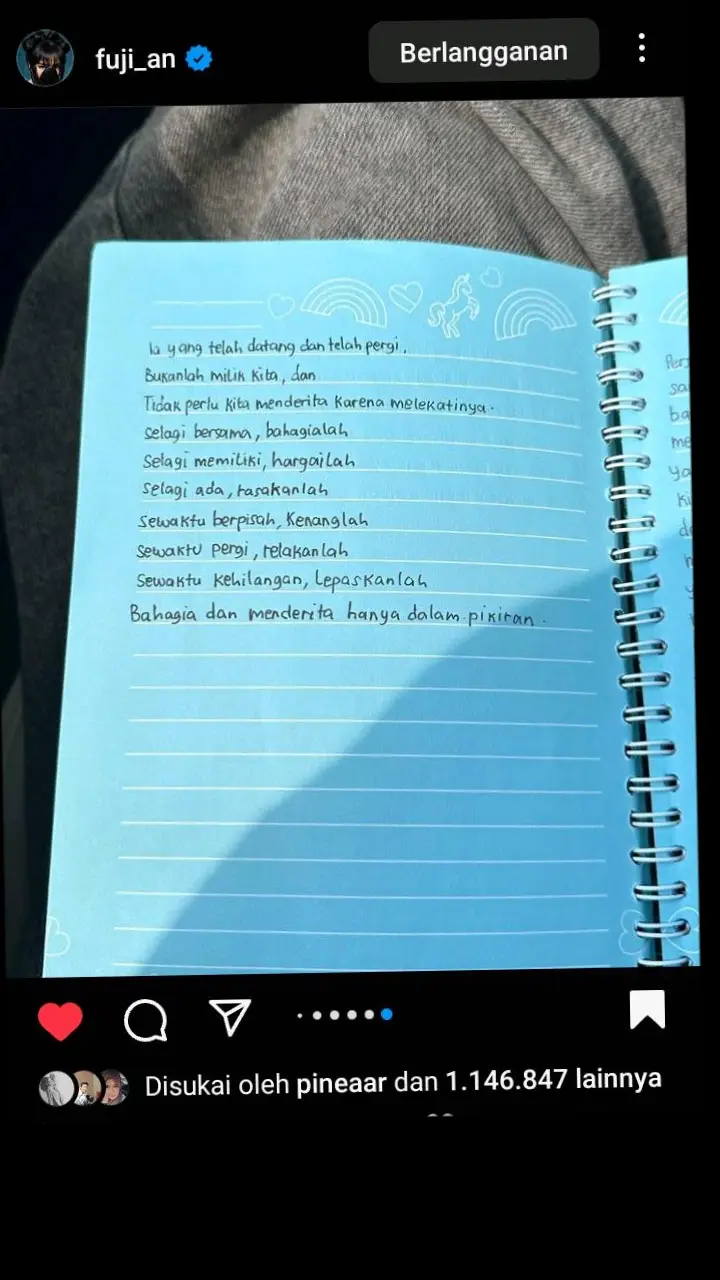 fuji_an
Berlangganan
Ia yang telah datang dan telah pergi,
Bukanlah milik kita, dan
Tidak perlu kita menderita karena melekatinya.
Selagi bersama, bahagialah
Selagi memiliki, hargailah
Selagi ada, rasakanlah
Sewaktu berpisah, kenanglah
Sewaktu pergi, relakanlah
Sewaktu kehilangan, lepaskanlah
Bahagia dan menderita hanya dalam pikiran.
sa
ba
me
Disukai oleh pineaar dan 1.146.847 lainnya